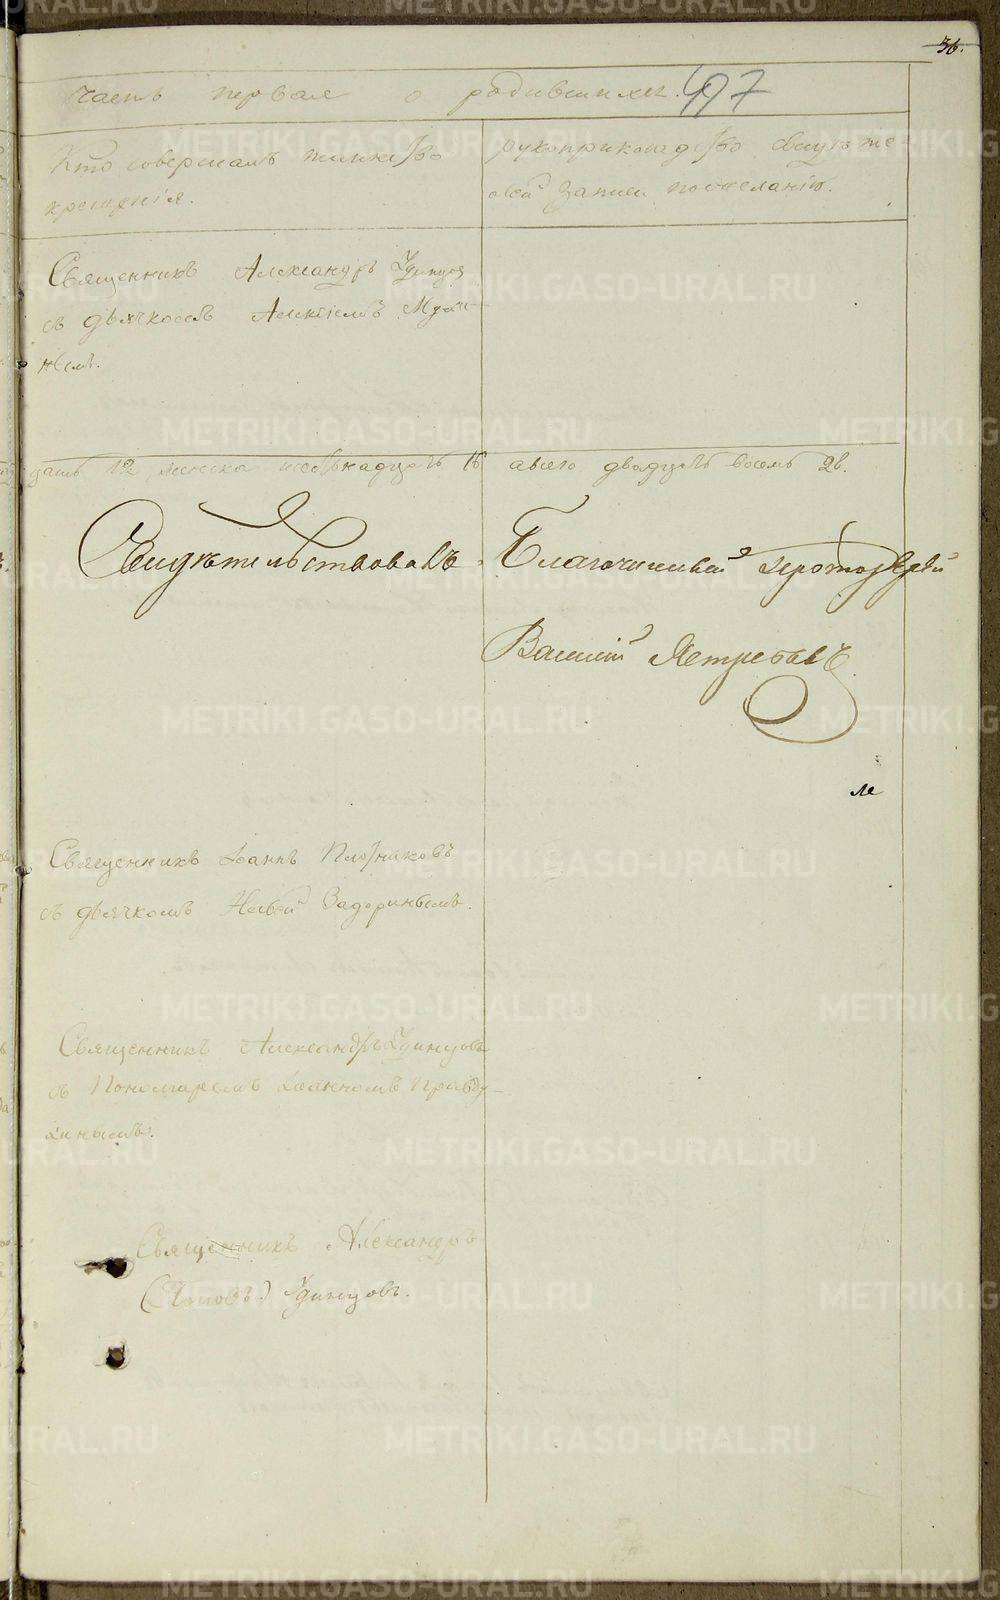 36.
Часть первая о родившихся. 497
Кто совершалъ таинство
крещенія.
рукоприкладство свидѣте-
лей записи по желанію.
Священникъ Александръ Удинцов
съ дьячкомъ Алексіемъ
цать 12 женска шестьнадцать 16 а всего двадцать восемь 28.
Свидѣтельствовалъ Благочинный Протоіерей
Василій Ястребовъ
Священникъ Іоаннъ Плотниковъ
съ дьячкомъ Задоринымъ.
Священникъ Александръ Удинцовъ
съ Пономаремъ Іоанномъ Правду-
хинымъ.
Священникъ Александръ
(Поповъ) Удинцовъ.